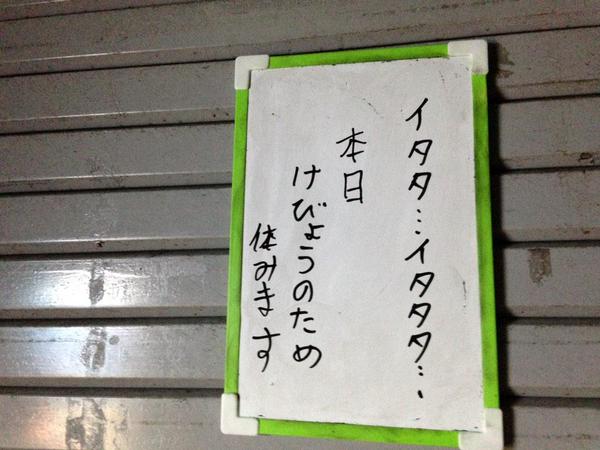 イタタ…イタタタ…
本日
けびょうのため
休みます